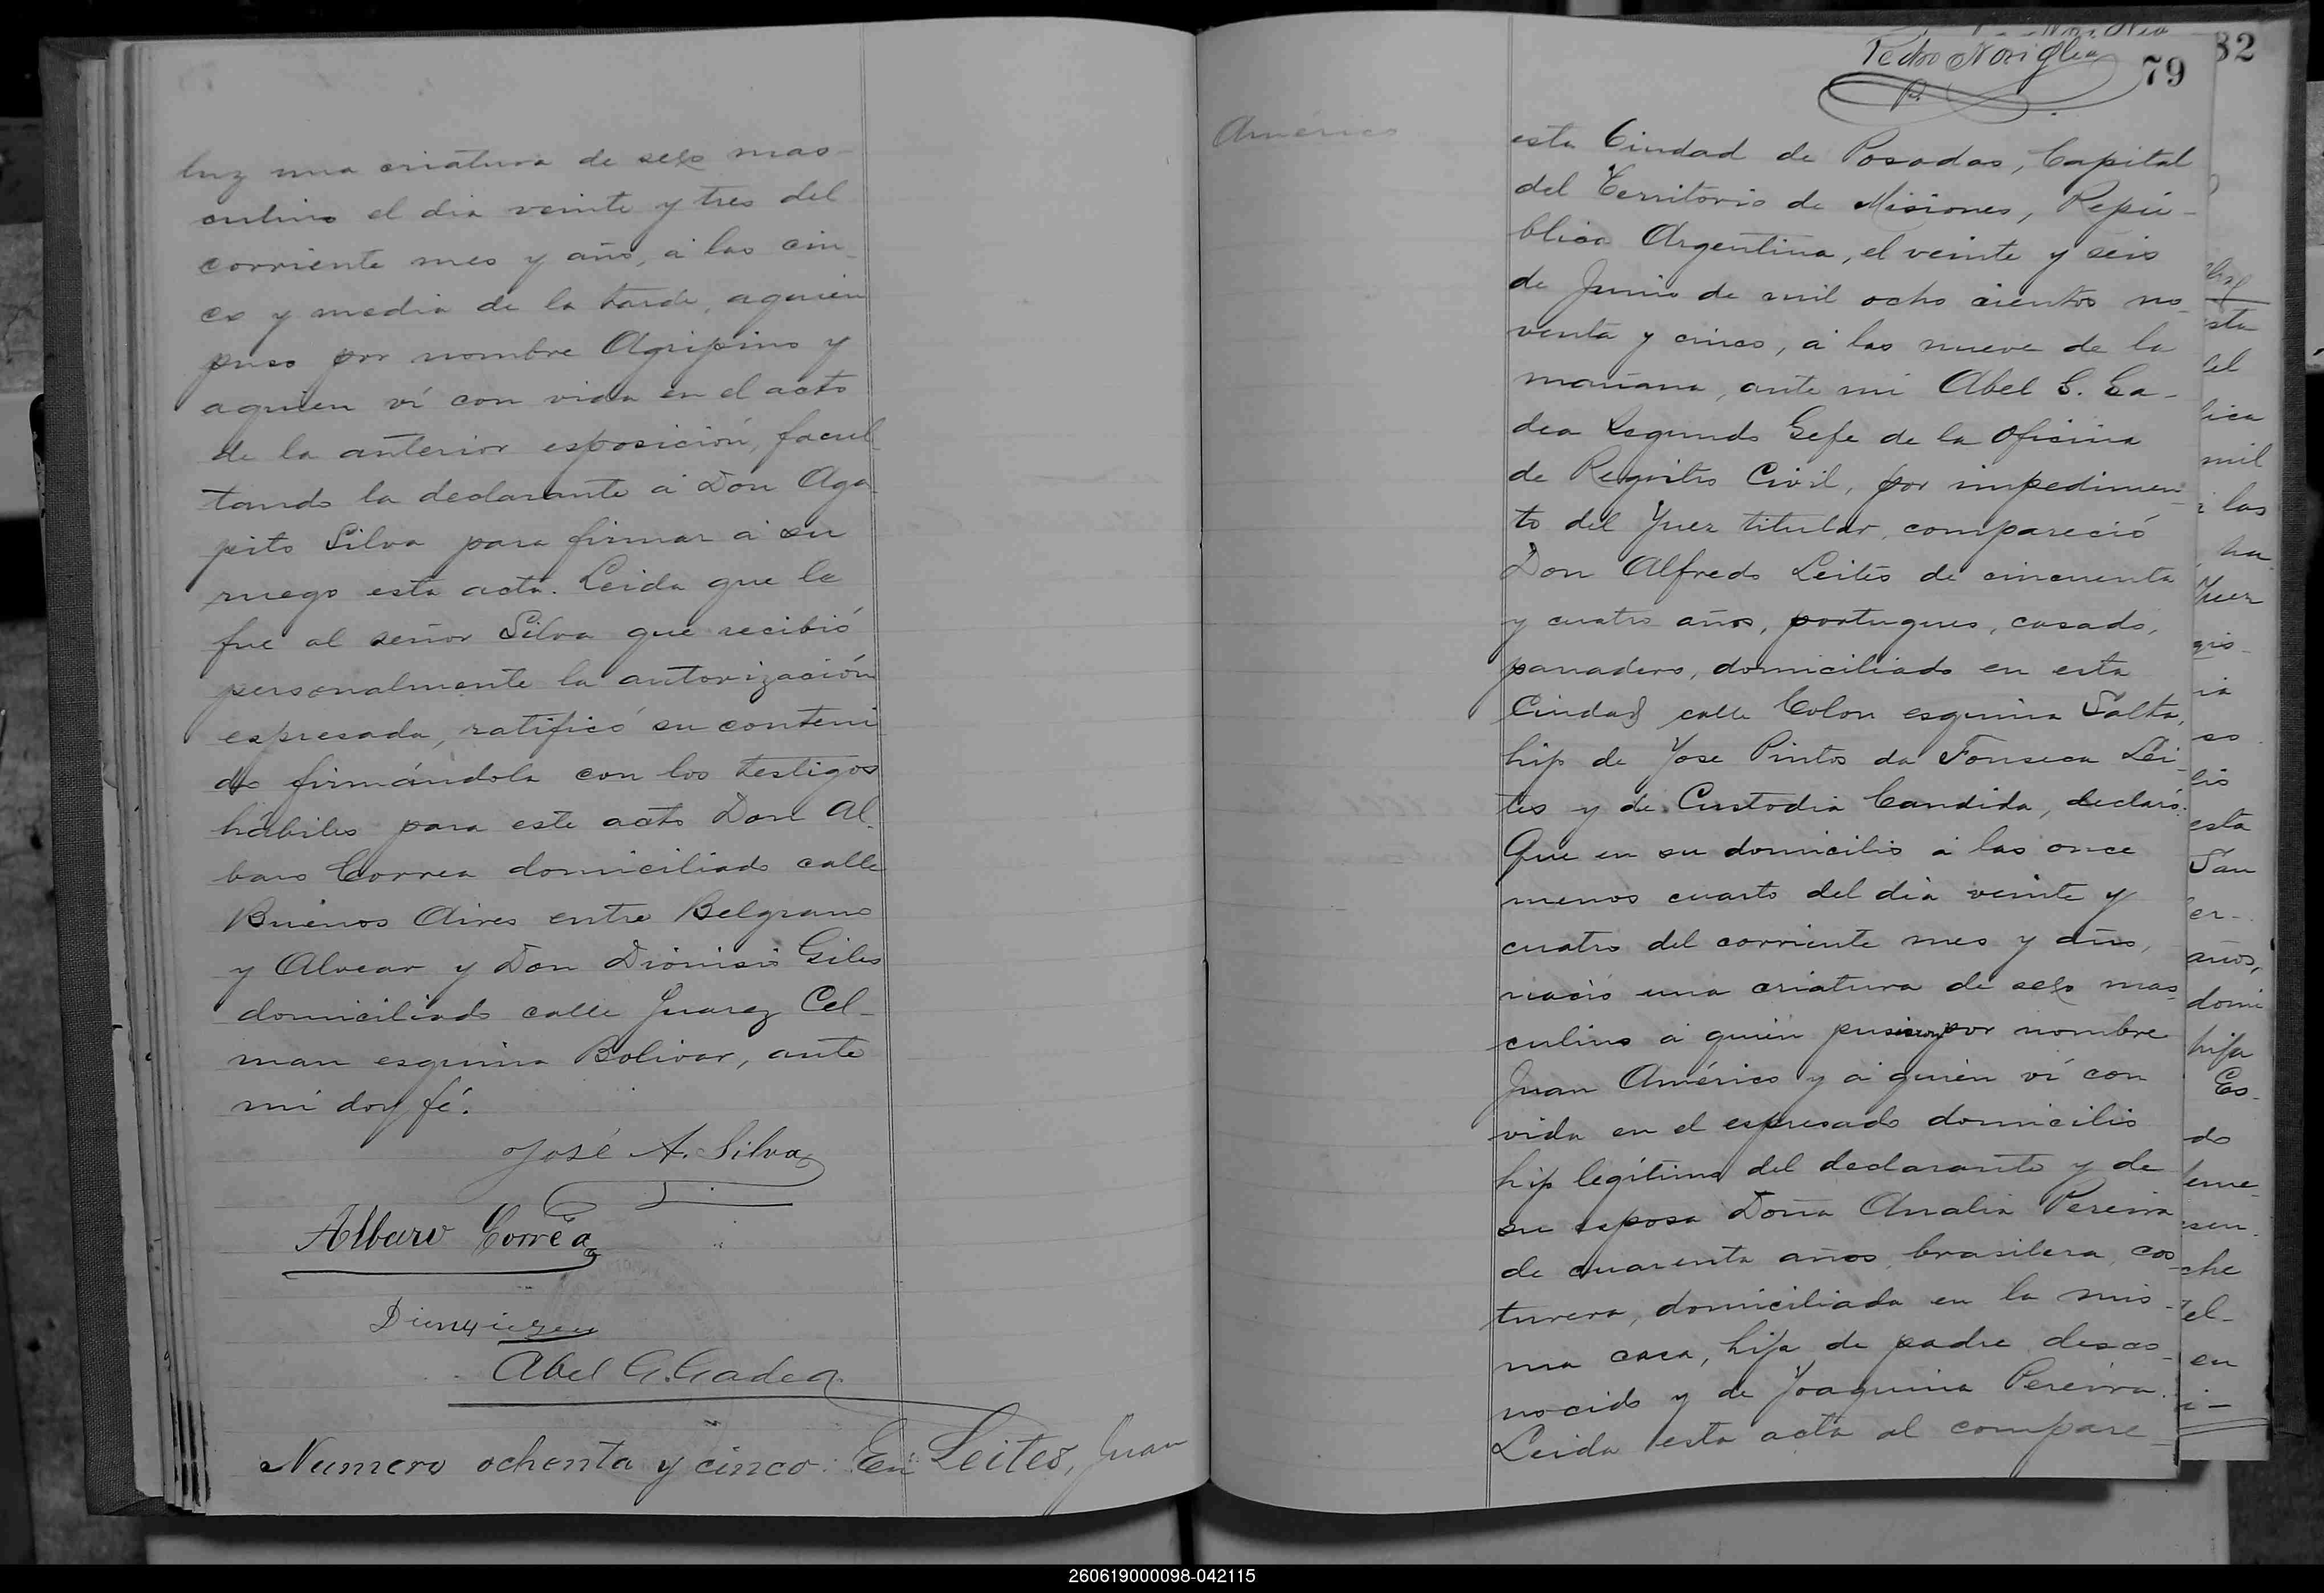 luz una criatura de sexo mas-
culino el dia veinte y tres del
corriente mes y año, á las cin-
co y media de la tarde, aquien
puso por nombre Agripino y
aquien ví con vida en el acto
de la anterior esposición, facul-
tando la declarante á Don Aga-
pito Silva para firmar á su
ruego esta acta. Leida que le
fue al señor Silva que recibió
personalmente la autorización
espresada, ratificó su conteni
do firmándola con los testigos
hábiles para este acto Don Al-
baro Correa domiciliado calle
Buenos Aires entre Belgrano
y Alvear y Don Dionisio Giles
domiciliado calle Juarez Cel-
man esquina Bolivar, ante
mi doy fé.
José A. Silva
Albaro Corrêa
Abel G. Gadea
Numero ochenta y cinco: En
Leites, Juan
Américo
Pedro Noriglia
79
esta Ciudad de Posadas, Capital
del Territorio de Misiones, Repú-
blica Argentina, el veinte y seis
de Junio de mil ocho cientos no-
venta y cinco, á las nueve de la
mañana, ante mi Abel G. Ga-
dea Segundo Gefe de la Oficina
de Registro Civil, por impedimen
to del Juez titular, compareció
Don Alfredo Leites de cincuenta
y cuatro años, portugues, casado,
panadero, domiciliado en esta
Ciudad calle Colon esquina Salta,
hijo de Jose Pinto da Fonseca Lei-
tes y de Custodia Candida, declaró:
Que en su domicilio á las once
menos cuarto del dia veinte y
cuatro del corriente mes y año,
nació una criatura de sexo mas-
culino á quien pusieron por nombre
Juan Américo y á quien ví con
vida en el espresado domicilio
hijo legítimo del declarante y de
su esposa Doña Analia Pereira
de cuarenta años, brasilera, cos-
turera, domiciliada en la mis-
ma casa, hija de padre desco-
nocido y de Joaquina Pereira.
Leida esta acta al compare-
82
sta
del
lica
mil
á las
Juez
gis-
esta
San
años,
domi
hija
Es-
do
che
tel-
en
260619000098-042115